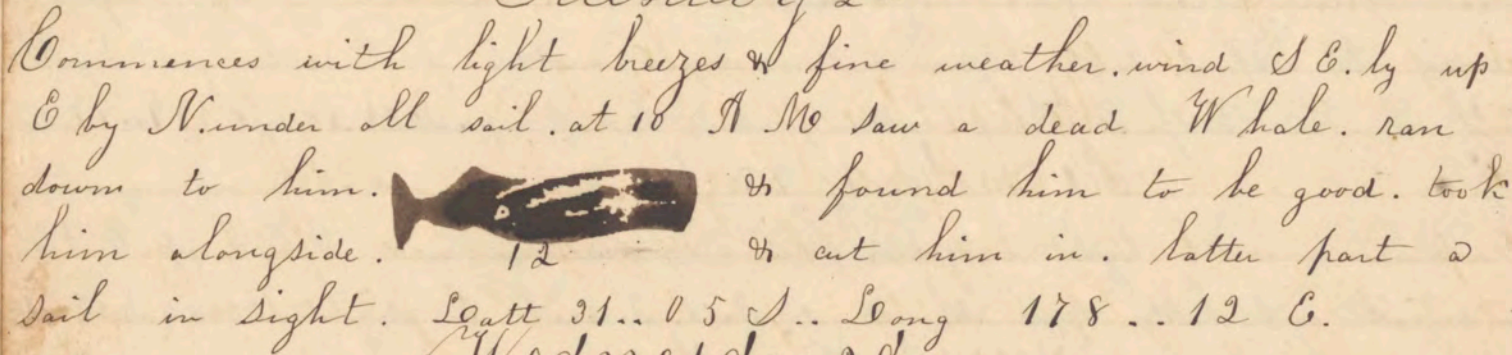 Commences with light breezes & fine weather. wind S E. ly up
E by N. under all sail. at 10 A M saw a dead Whale. ran
down to him. & found him to be good. took
him alongside. 12 & cut him in. latter part a
sail in sight. Latt 31.. 05 S.. Long 178.. 12 E.